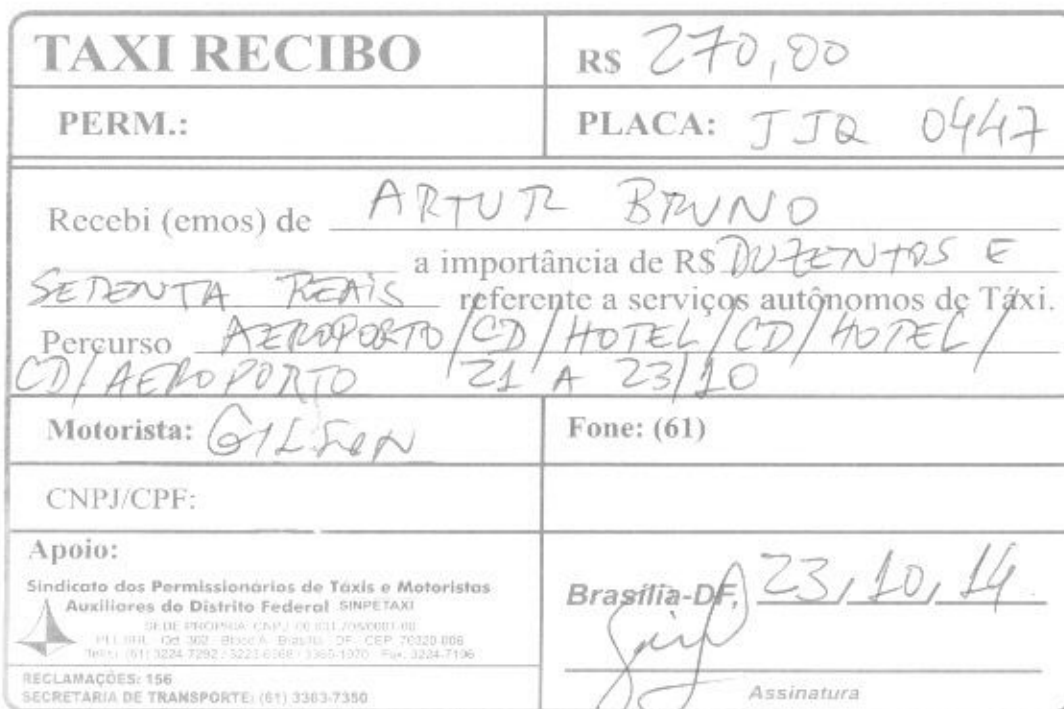 TAXI RECIBO
R$ 270,00
PERM.:
PLACA: JJQ 0447
Recebi (emos) de ARTUR BRUNO
a importância de R$ DUZENTOS E
SETENTA REAIS referente a serviços autônomos de Táxi.
Percurso AEROPORTO/CD/HOTEL/CD/HOTEL/
CD/AEROPORTO 21 A 23/10
Motorista: GILSON
Fone: (61)
CNPJ/CPF:
Apoio:
Sindicato dos Permissionários de Táxis e Motoristas
Auxiliares do Distrito Federal SINPETAXI
SEDE PRÓPRIA: CNPJ
Bloco A - Brasília - DF - CEP 70320-006
(61) 3224-7292 Fax: 3224-7196
RECLAMAÇÕES: 156
SECRETARIA DE TRANSPORTE: (61) 3363-7350
Brasília-DF, 23, 10, 14
Assinatura